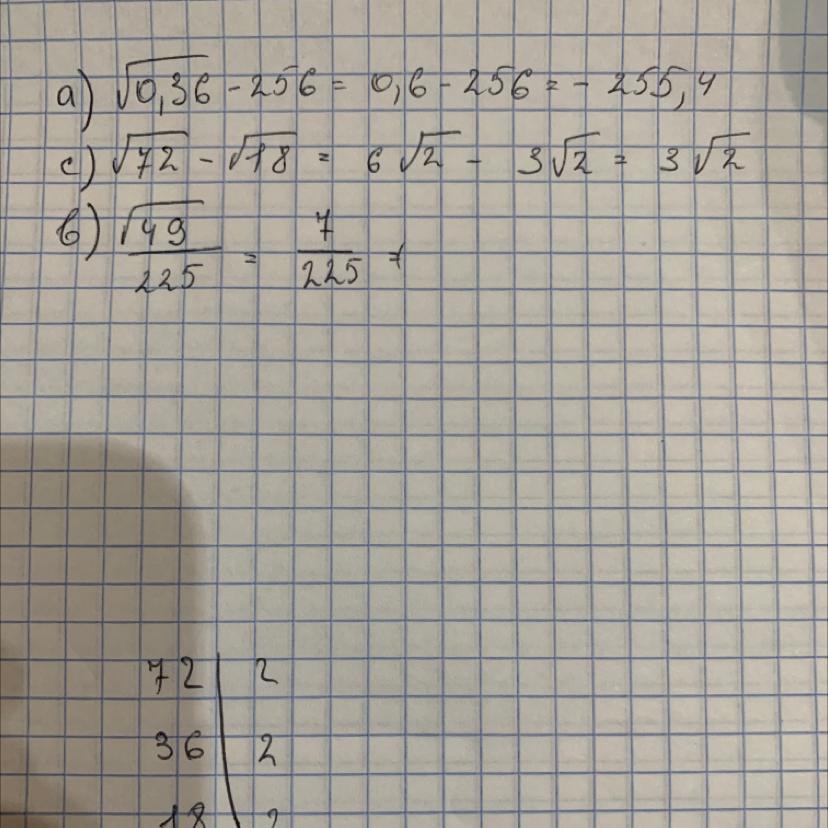 а) √0,36 - 256 = 0,6 - 256 = - 255,4
с) √72 - √18 = 6√2 - 3√2 = 3√2
в) √49/225 = 7/225 =
72 | 2
36 | 2
18 | 2